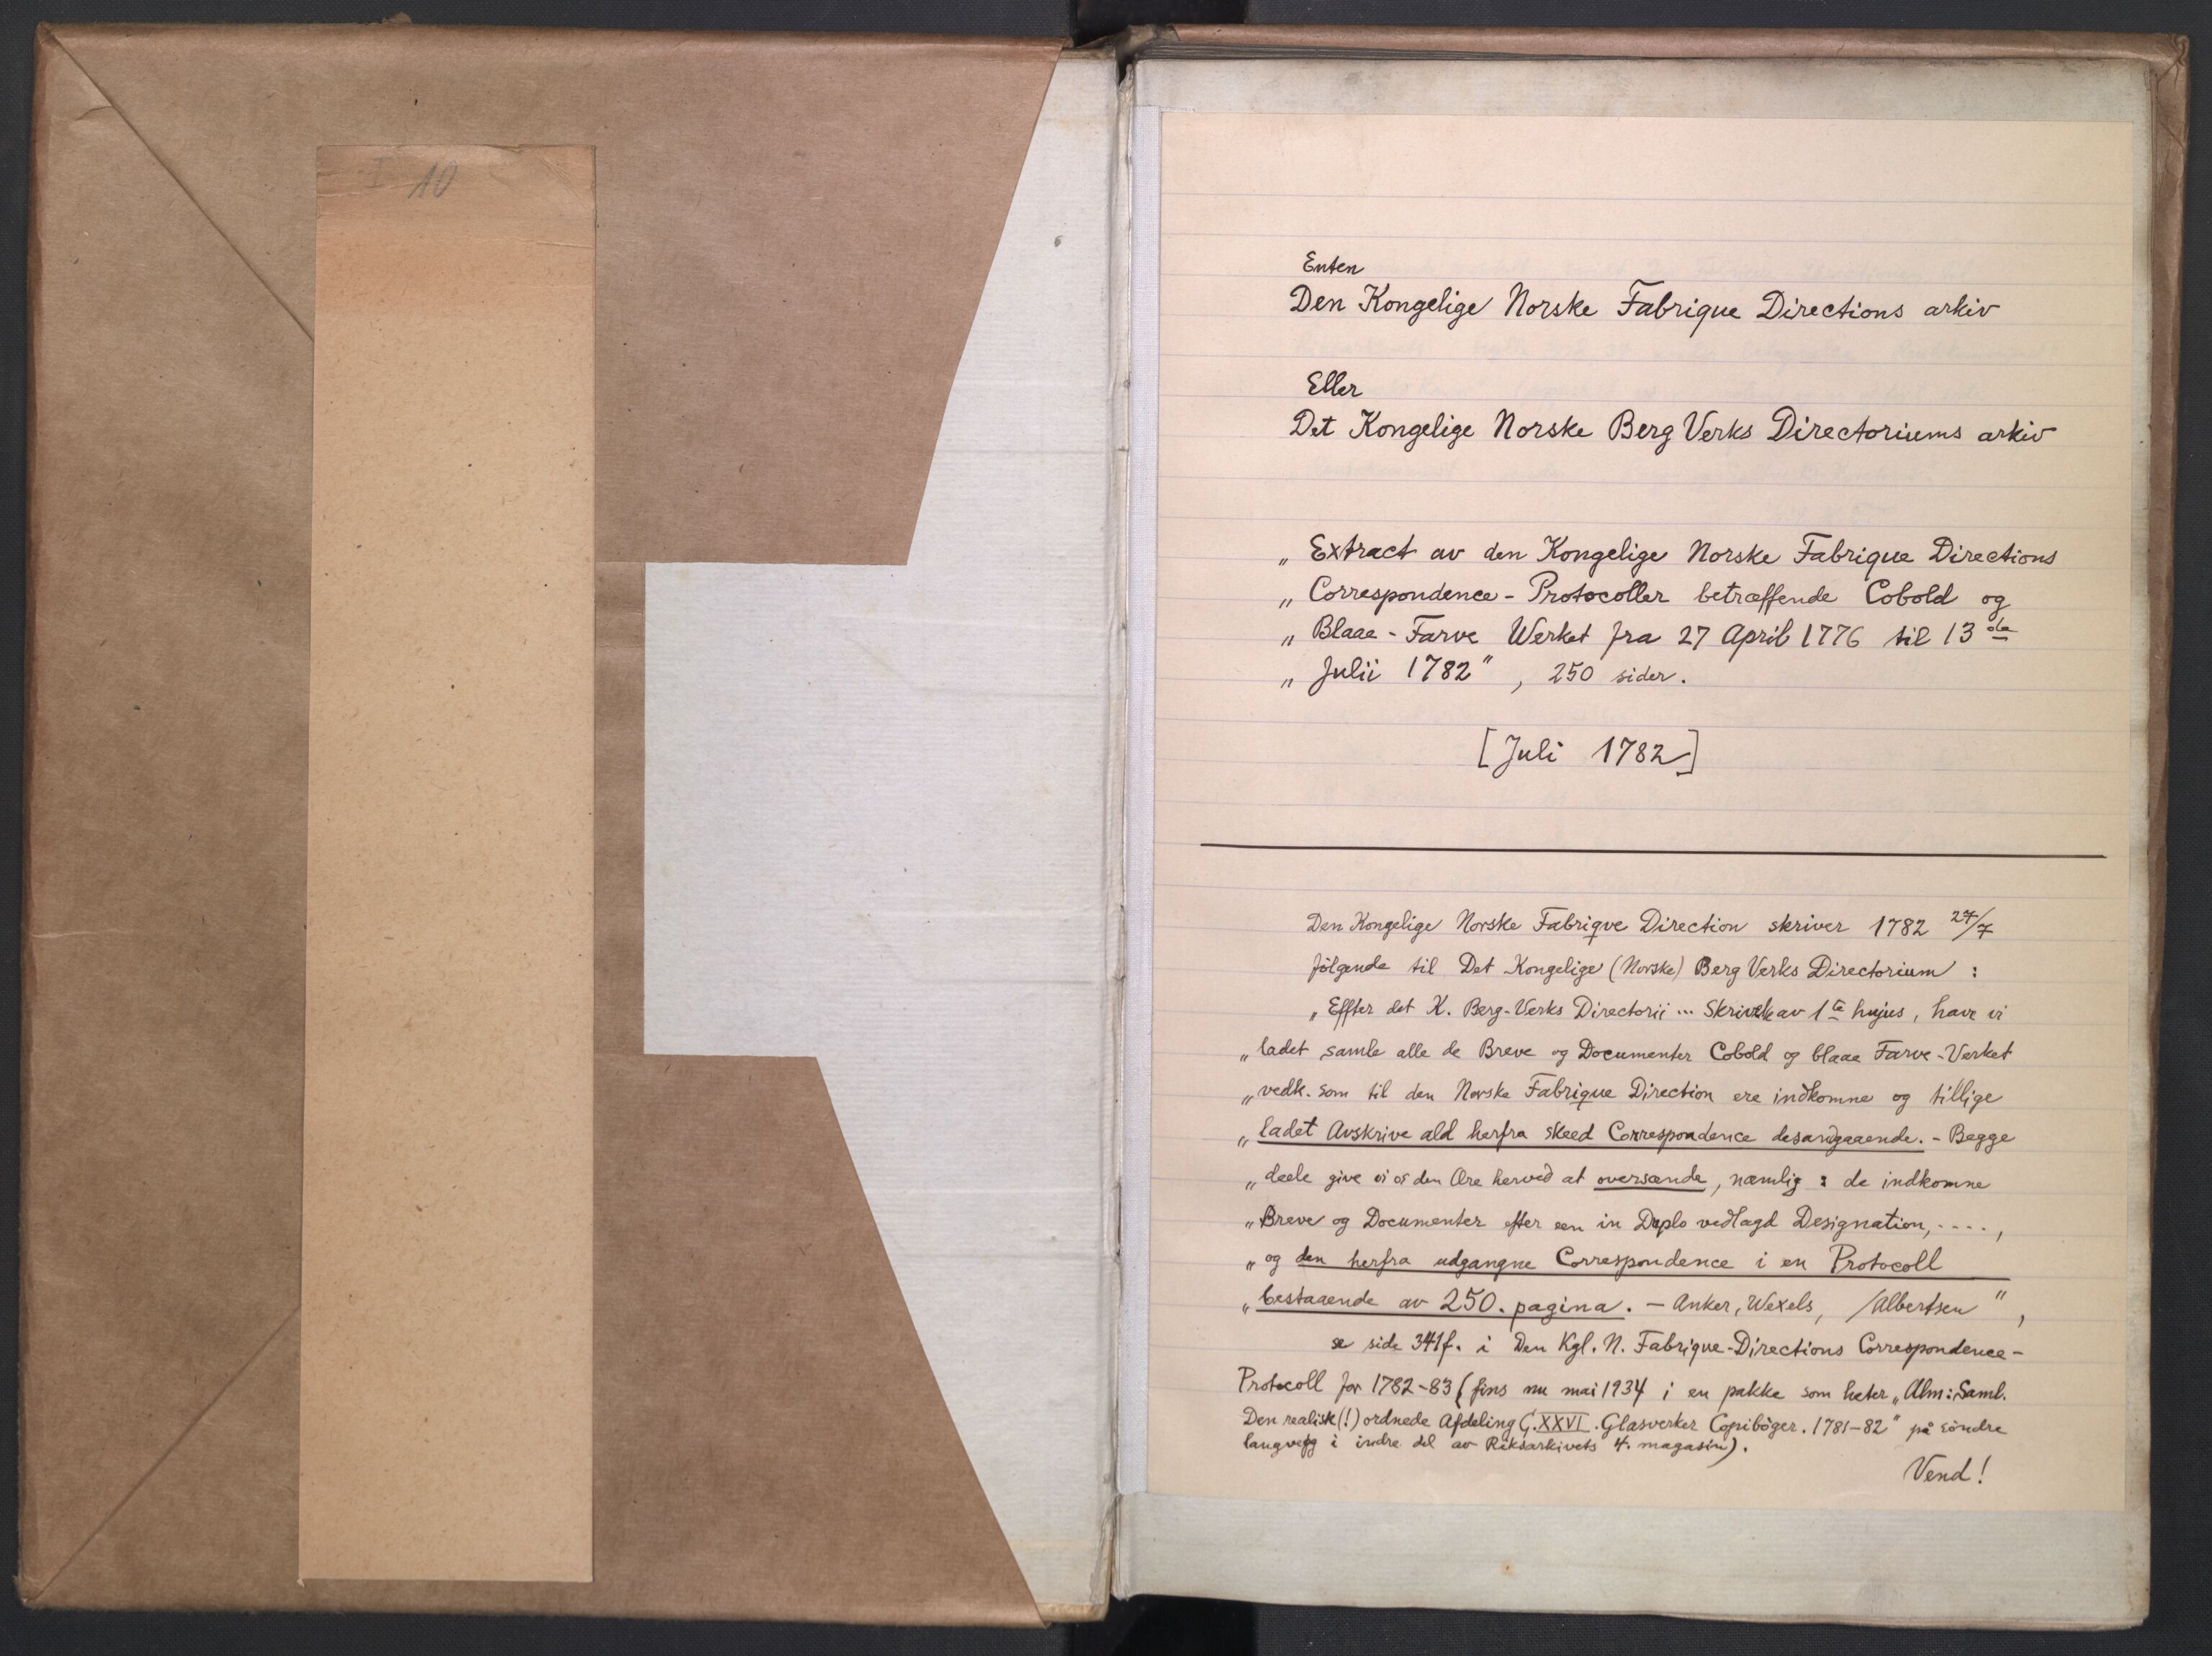 I 10
Enten
Den Kongelige Norske Fabrique Directions arkiv
Eller
Det Kongelige Norske Berg Verks Directoriums arkiv
„ Extract av den Kongelige Norske Fabrique Directions
„ Correspondence - Protocoller betræffende Cobold og
„ Blaae - Farve Werket fra 27 April 1776 til 13 de
„ Julii 1782", 250 sider.
[Juli 1782]
Den Kongelige Norske Fabriqve Direction skriver 1782 27/7
følgende til Det Kongelige (Norske) Berg Verks Directorium :
„Effter det K. Berg-Verks Directorii ... av 1te hujus, have vi
„ladet samle alle de Breve og Documenter Cobold og blaae Farve-Verket
„vedk. som til den Norske Fabrique Direction ere indkomne og tillige
„ladet Avskrive ald herfra skeed Correspondence desangaaende. - Begge
„deele give vi os den Ære herved at oversænde, næmlig : de indkomne
„Breve og Documenter efter een in Duplo vedlagd Designation, . . . . ,
„og den herfra udgangne Correspondence i en Protocoll
„bestaaende av 250. pagina. - Anker, Wexels, /Albertsen",
se side 341f. i Den Kgl. N. Fabriqve-Directions Correspondence-
Protocoll for 1782-83 (fins nu mai 1934 i en pakke som heter „Alm: Saml.
Den realisk(!) ordnede Afdeling G.XXVI. Glasverker Copibøger. 1781-82" på søndre
langvegg i indre del av Riksarkivets 4. magasin).
Vend!